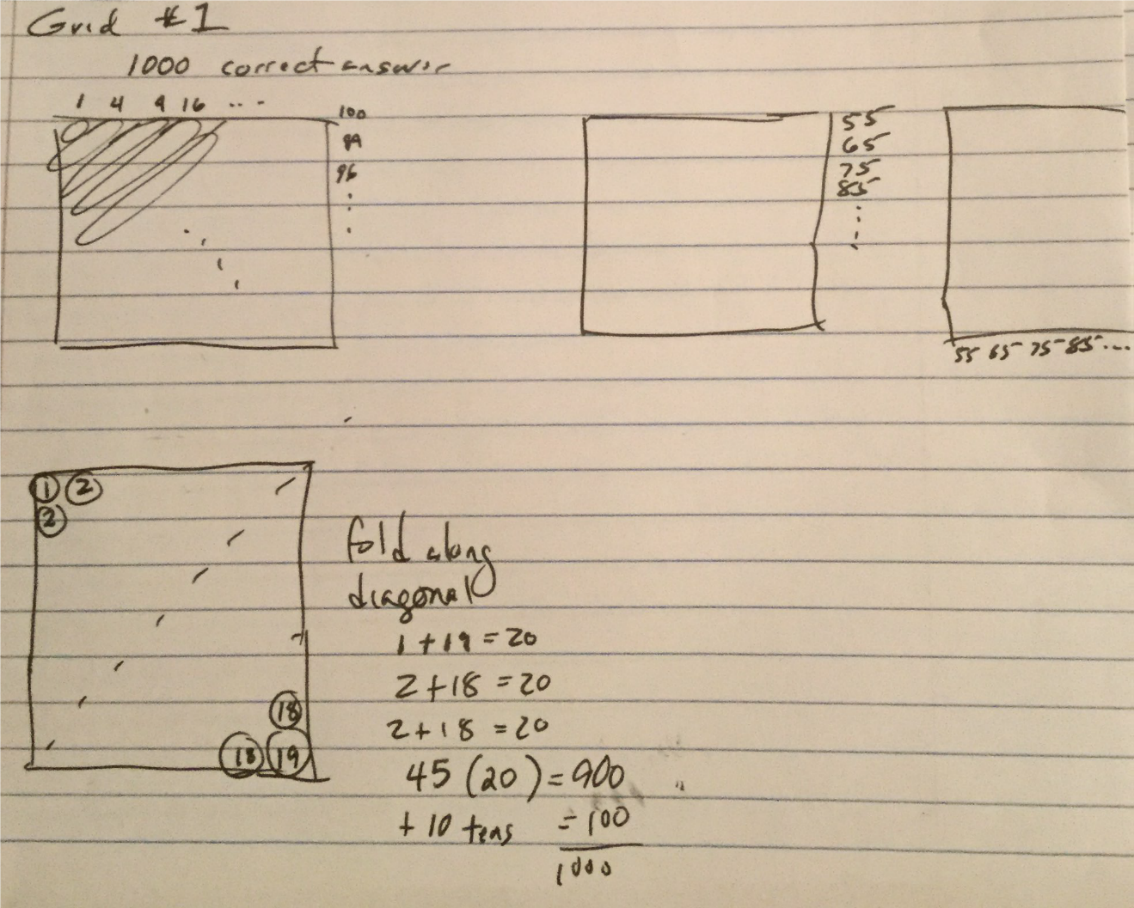 Grid #1
1000 correct answer
1 4 9 16 ...
100
99
96
55
65
75
85
55 65 75 85...
1 2
2
18
18 19
fold along
diagonal
1 + 19 = 20
2 + 18 = 20
2 + 18 = 20
45 (20) = 900
+ 10 tens = 100
1000